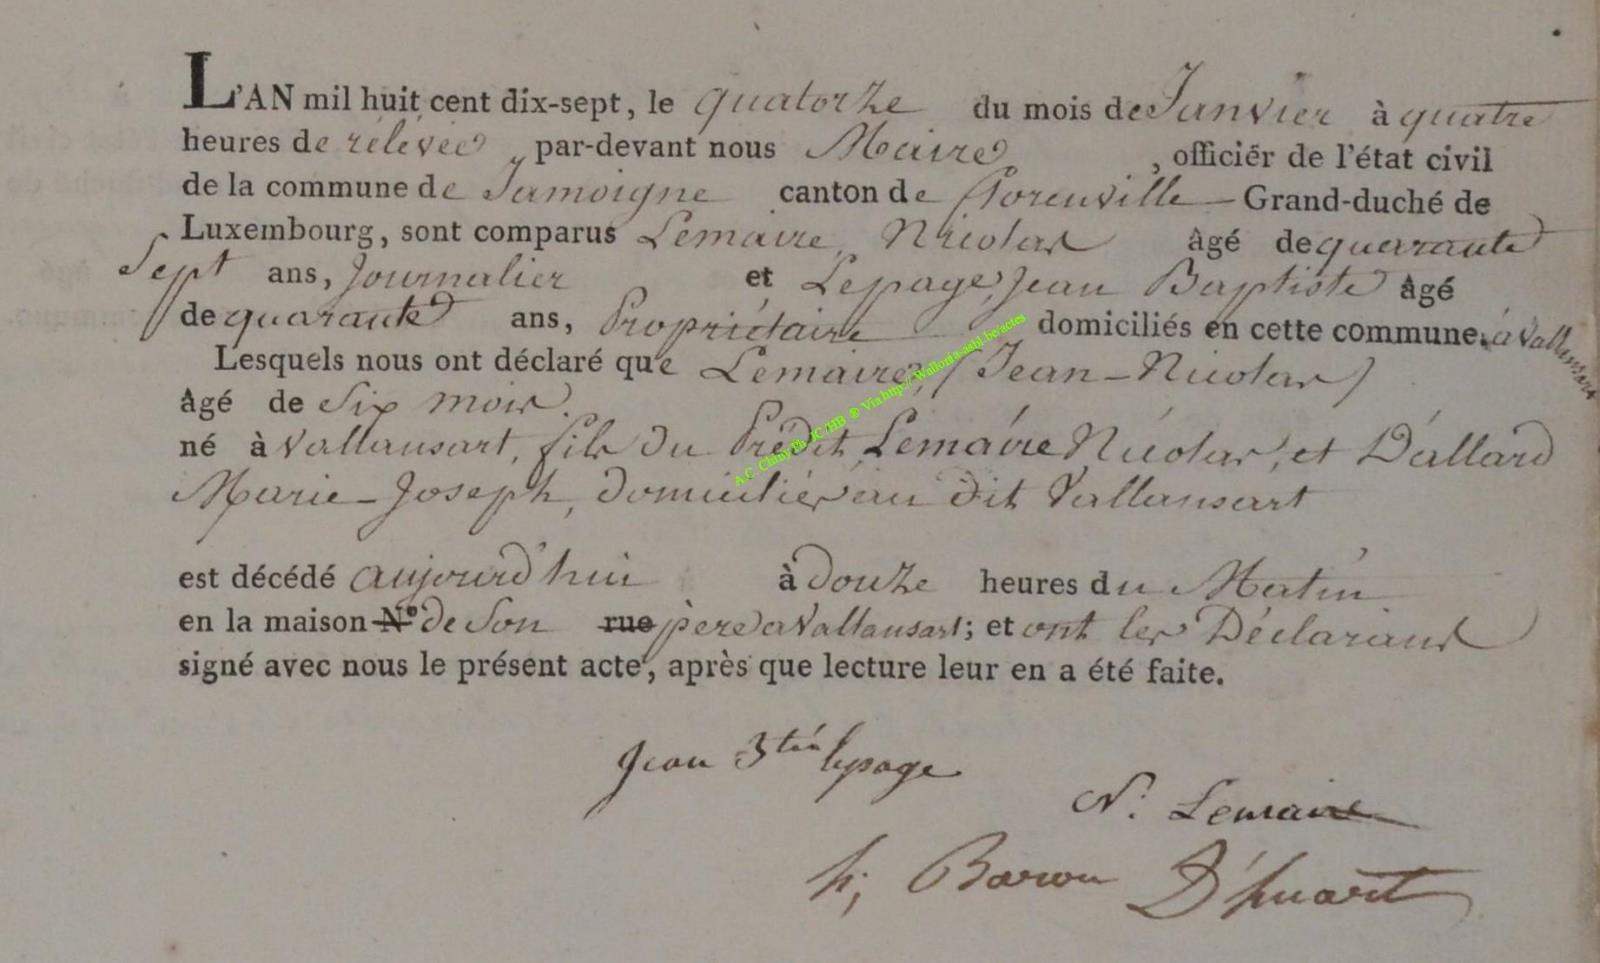 L'AN mil huit cent dix-sept, le quatorze du mois de Janvier à quatre
heures de rélévée, par-devant nous Maire, officier de l'état civil
de la commune de Jamoigne canton de florenville Grand-duché de
Luxembourg, sont comparus Lemaire, Nicolas âgé de quarante
Sept ans, Journalier et Lepage, Jean Baptiste âgé
de quarante ans, Propriétaire domiciliés en cette commune. à Vallansart
Lesquels nous ont déclaré que Lemaire, (Jean-Nicolas)
âgé de Six mois.
né à Vallansart, fils du Prédit Lemaire Nicolas, et D'allard
Marie-Joseph, domiciliés au dit Vallansart
est décédé aujourd'hui à douze heures du Matin
en la maison N.° de Son rue père a Vallansart; et ont les Déclarans
signé avec nous le présent acte, après que lecture leur en a été faite.
Jean Btie lepage
N. Lemaire
h; Baron D'huart
A.C. Chiny Ph JC/HB ® Via http://Wallonia-asbl.be/actes